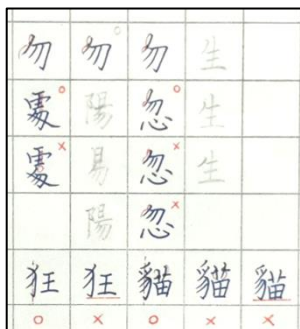 勿 勿 勿 生
處 陽 忽 生
處 易 忽 生
陽 忽
狂 狂 貓 貓 貓
○ × ○ × ×